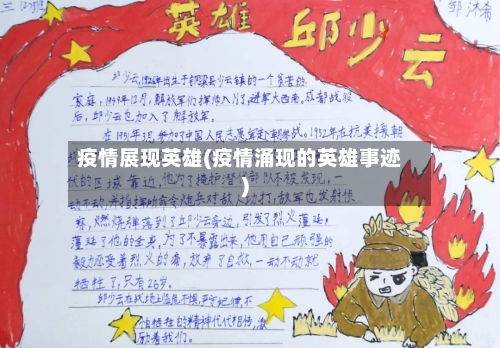 三(2)班
邹沐希
英雄 邱少云
邱少云,1926年出生于铜梁县少云镇的一个贫苦的
家庭,1949年12月,解放军们挥师入川,进军大西南,成都战役
后,邱少云也加入了解放军。
在1951年3月,参加了中国人民志愿军赴朝参战。1952年在抗美援朝
疫情展现英雄(疫情涌现的英雄事迹
)
的区域靠近,他为了掩护潜
部队不被发现,一
动不动,并指挥
令炮兵对敌
动打,敌军也发射侦
察,燃烧弹落到了邱少云旁边,引发了烈火蔓延,
蔓延了他的全身,为了不暴露出来,他用自己顽强的
毅力忍受着烈火的痛,放弃了自救,一动不动就
牺牲了,只有26岁。
邱少云在战场上临危不惧,
怕牺牲的精神代代相传,激
励着我们。